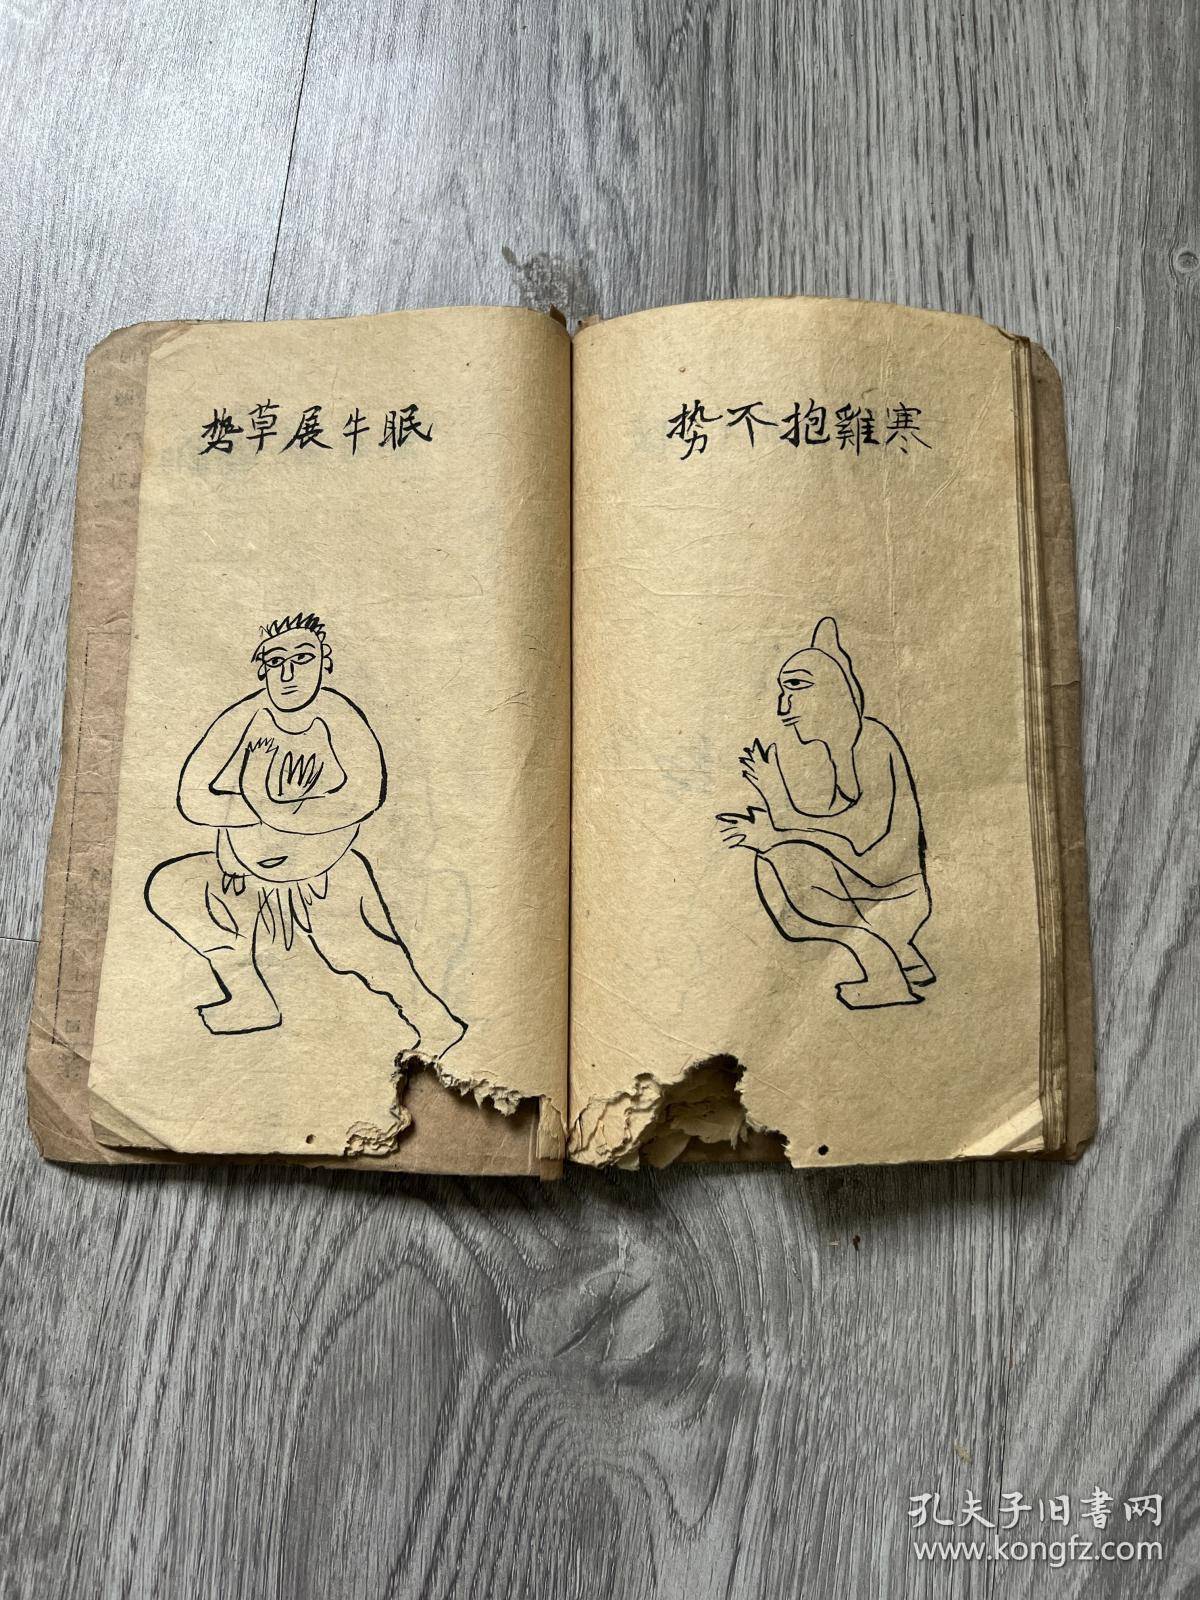 寒雞抱不势
眠牛展草势
孔夫子旧書网
www.kongfz.com